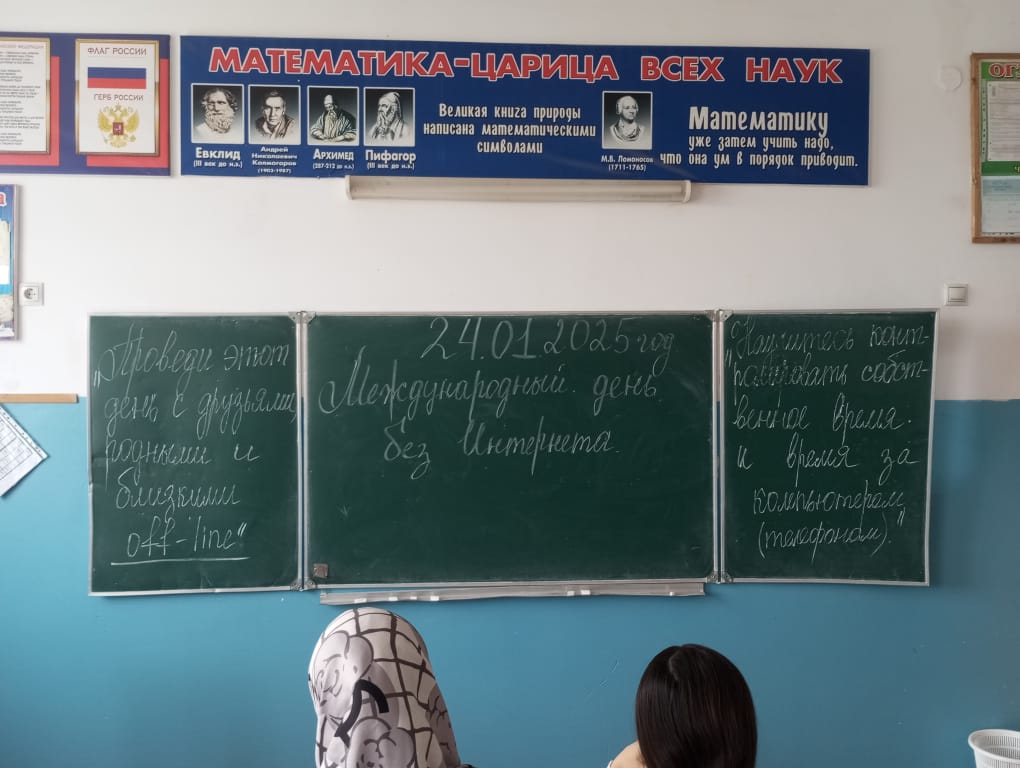 ФЛАГ РОССИИ
ГЕРБ РОССИИ
МАТЕМАТИКА-ЦАРИЦА ВСЕХ НАУК
ЕВКЛИД
(III век до н.э.)
Андрей
Николаевич
Колмогоров
(1903-1987)
АРХИМЕД
(287-212 до н.э.)
ПИФАГОР
(III век до н.э.)
Великая книга природы
написана математическими
символами
М.В. Ломоносов
(1711-1765)
Математику
уже затем учить надо,
что она ум в порядок приводит.
ОГЭ
„Проведи этот
день с друзьями,
родными и
близкими
off-line“
24.01.2025 год
Международный день
без Интернета.
„Научитесь конт-
ролировать собст-
венное время.
и время за
компьютером
(телефоном).“